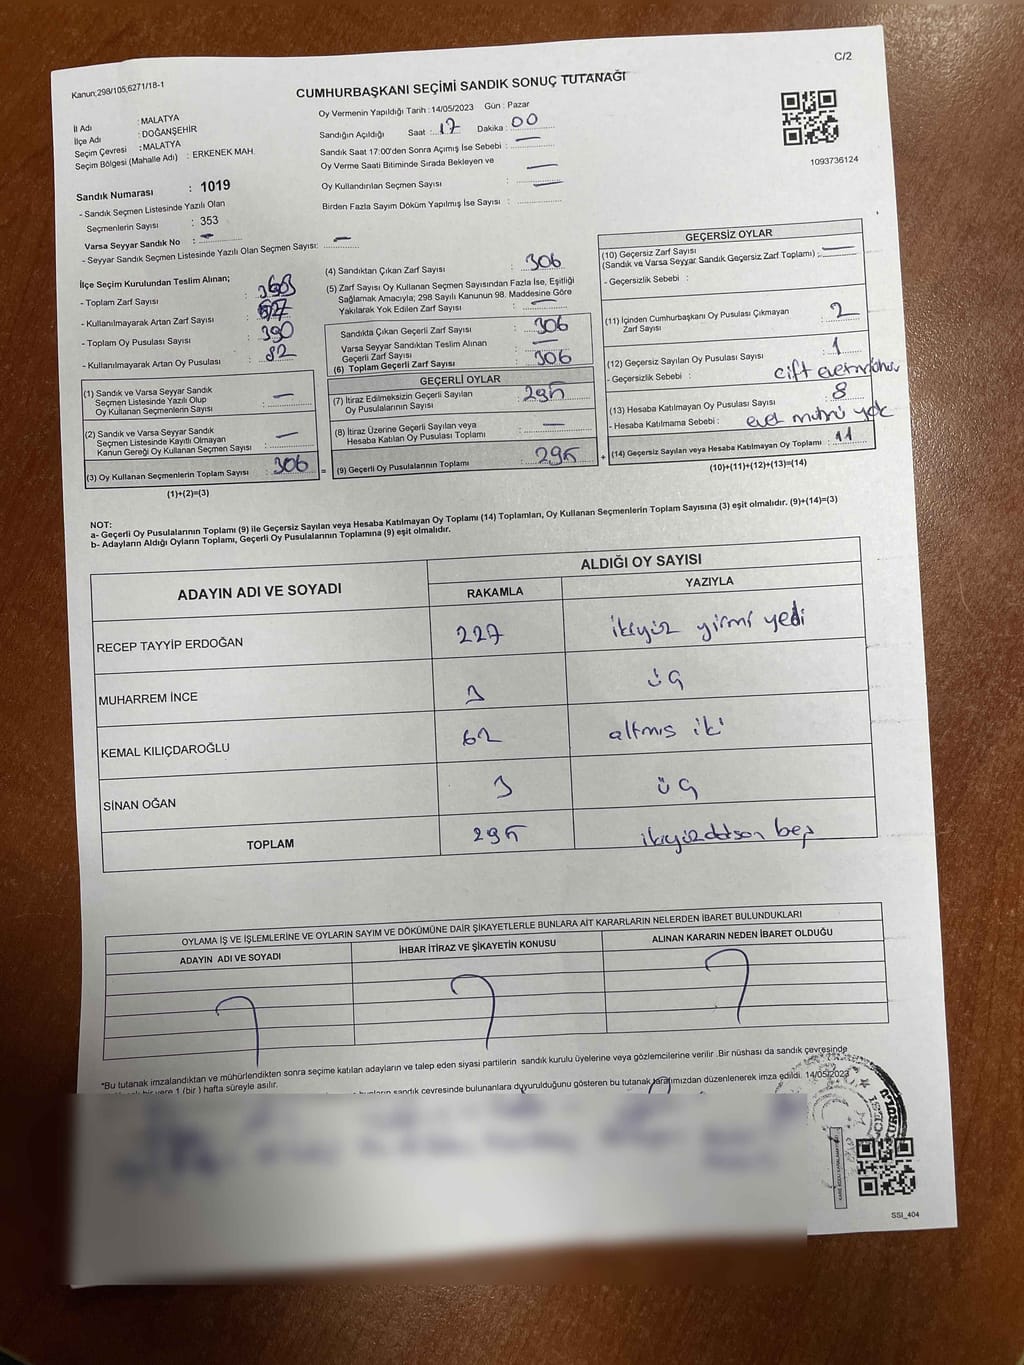 C/2
Kanun;298/105,6271/18-1
CUMHURBAŞKANI SEÇİMİ SANDIK SONUÇ TUTANAĞI
İl Adı : MALATYA
İlçe Adı : DOĞANŞEHİR
Seçim Çevresi : MALATYA
Seçim Bölgesi (Mahalle Adı) : ERKENEK MAH.
Sandık Numarası : 1019
- Sandık Seçmen Listesinde Yazılı Olan
Seçmenlerin Sayısı : 353
Varsa Seyyar Sandık No : —
- Seyyar Sandık Seçmen Listesinde Yazılı Olan Seçmen Sayısı: —
Oy Vermenin Yapıldığı Tarih : 14/05/2023 Gün : Pazar
Sandığın Açıldığı Saat : 17 Dakika : 00
Sandık Saat 17:00'den Sonra Açımış İse Sebebi : —
Oy Verme Saati Bitiminde Sırada Bekleyen ve
Oy Kullandırılan Seçmen Sayısı : —
Birden Fazla Sayım Döküm Yapılmış İse Sayısı : —
1093736124
İlçe Seçim Kurulundan Teslim Alınan;
- Toplam Zarf Sayısı :
- Kullanılmayarak Artan Zarf Sayısı :
- Toplam Oy Pusulası Sayısı : 390
- Kullanılmayarak Artan Oy Pusulası : 82
(1) Sandık ve Varsa Seyyar Sandık
Seçmen Listesinde Yazılı Olup
Oy Kullanan Seçmenlerin Sayısı : —
(2) Sandık ve Varsa Seyyar Sandık
Seçmen Listesinde Kayıtlı Olmayan
Kanun Gereği Oy Kullanan Seçmen Sayısı : —
(3) Oy Kullanan Seçmenlerin Toplam Sayısı : 306 =
(1)+(2)=(3)
(4) Sandıktan Çıkan Zarf Sayısı : 306
(5) Zarf Sayısı Oy Kullanan Seçmen Sayısından Fazla İse, Eşitliği
Sağlamak Amacıyla; 298 Sayılı Kanunun 98. Maddesine Göre
Yakılarak Yok Edilen Zarf Sayısı : —
Sandıkta Çıkan Geçerli Zarf Sayısı : 306
Varsa Seyyar Sandıktan Teslim Alınan
Geçerli Zarf Sayısı : —
(6) Toplam Geçerli Zarf Sayısı : 306
GEÇERLİ OYLAR
(7) İtiraz Edilmeksizin Geçerli Sayılan
Oy Pusulalarının Sayısı : 295
(8) İtiraz Üzerine Geçerli Sayılan veya
Hesaba Katılan Oy Pusulası Toplamı : —
(9) Geçerli Oy Pusulalarının Toplamı : 295 +
GEÇERSİZ OYLAR
(10) Geçersiz Zarf Sayısı
(Sandık ve Varsa Seyyar Sandık Geçersiz Zarf Toplamı) : —
- Geçersizlik Sebebi :
(11) İçinden Cumhurbaşkanı Oy Pusulası Çıkmayan
Zarf Sayısı : 2
(12) Geçersiz Sayılan Oy Pusulası Sayısı : 1
- Geçersizlik Sebebi : çift evet
(13) Hesaba Katılmayan Oy Pusulası Sayısı : 8
- Hesaba Katılmama Sebebi : evet mührü yok
(14) Geçersiz Sayılan veya Hesaba Katılmayan Oy Toplamı : 11
(10)+(11)+(12)+(13)=(14)
NOT:
a- Geçerli Oy Pusulalarının Toplamı (9) ile Geçersiz Sayılan veya Hesaba Katılmayan Oy Toplamı (14) Toplamları, Oy Kullanan Seçmenlerin Toplam Sayısına (3) eşit olmalıdır. (9)+(14)=(3)
b- Adayların Aldığı Oyların Toplamı, Geçerli Oy Pusulalarının Toplamına (9) eşit olmalıdır.
ADAYIN ADI VE SOYADI
ALDIĞI OY SAYISI
RAKAMLA YAZIYLA
RECEP TAYYİP ERDOĞAN 227 ikiyüz yirmi yedi
MUHARREM İNCE 3 üç
KEMAL KILIÇDAROĞLU 62 altmış iki
SİNAN OĞAN 3 üç
TOPLAM 295 ikiyüzdoksan beş
OYLAMA İŞ VE İŞLEMLERİNE VE OYLARIN SAYIM VE DÖKÜMÜNE DAİR ŞİKAYETLERLE BUNLARA AİT KARARLARIN NELERDEN İBARET BULUNDUKLARI
ADAYIN ADI VE SOYADI İHBAR İTİRAZ VE ŞİKAYETİN KONUSU ALINAN KARARIN NEDEN İBARET OLDUĞU
*Bu tutanak imzalandıktan ve mühürlendikten sonra seçime katılan adayların ve talep eden siyasi partilerin sandık kurulu üyelerine veya gözlemcilerine verilir .Bir nüshası da sandık çevresinde
yere 1 (bir ) hafta süreyle asılır.
sandık çevresinde bulunanlara duyurulduğunu gösteren bu tutanak tarafımızdan düzenlenerek imza edildi. 14/05/2023
SSI_404